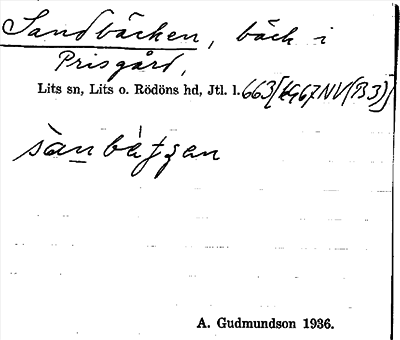 Sandbäcken, bäck i
Prisgård,
Lits sn, Lits o. Rödöns hd, Jtl. l. 663
A. Gudmundson 1936.